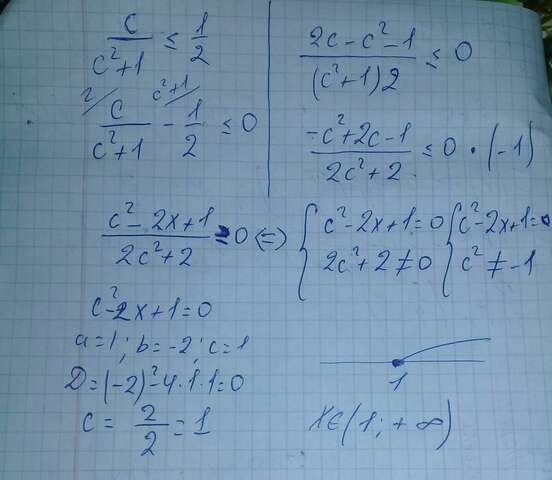 c/(c²+1) ≤ 1/2
2/ c/(c²+1) - c²+1/ 1/2 ≤ 0
(2c-c²-1)/((c²+1)2) ≤ 0
(-c²+2c-1)/(2c²+2) ≤ 0 · (-1)
(c²-2x+1)/(2c²+2) ≥ 0 (=) { c²-2x+1=0 { c²-2x+1=0
2c²+2≠0 c²≠-1
c²-2x+1=0
a=1; b=-2; c=1
D=(-2)²-4·1·1=0
c = 2/2 = 1
1
x∈(1; +∞)